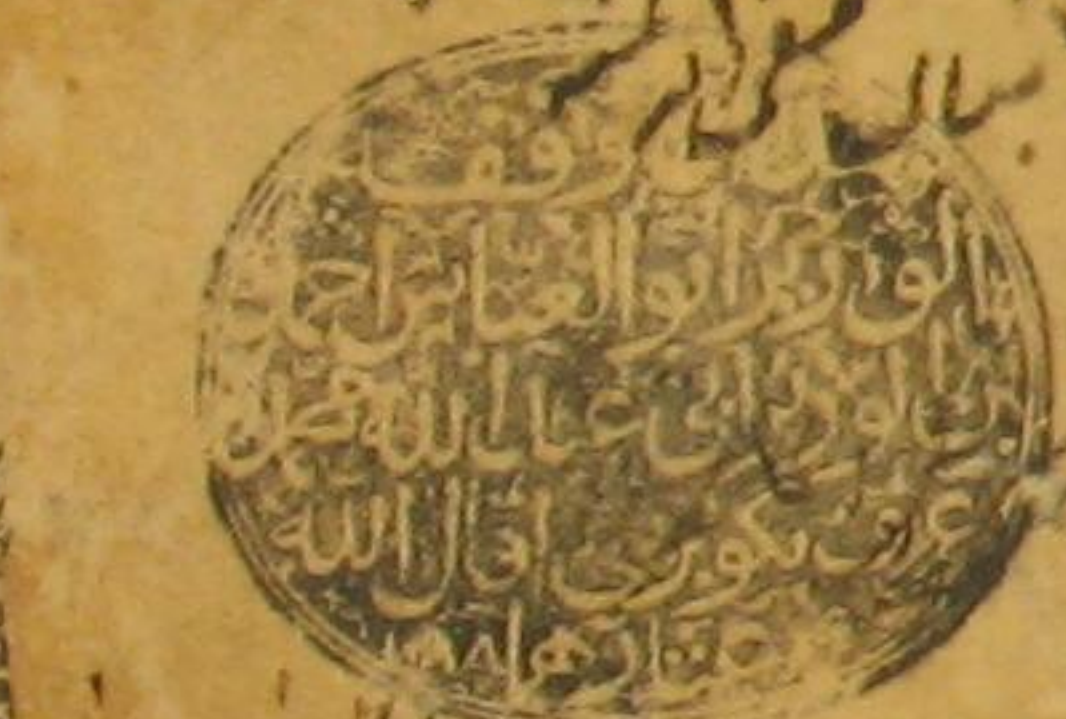 وقف
الوزير ابو العباس احمد
بن الوزير ابي عبد الله محمد
عرف بكوبرلي اقال الله
عثارهما